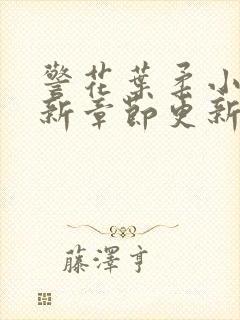 警花葉柔小
新章節更新
藤澤亨